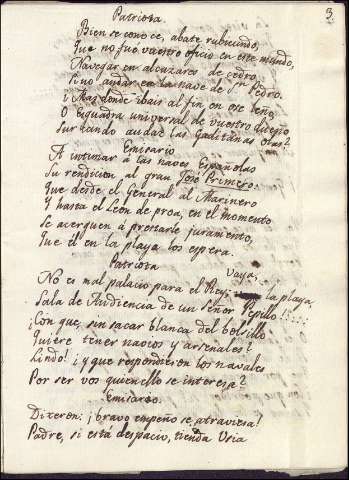 3
Patriota.
Bien se conoce, abate rubicundo,
Que no fue vuestro oficio en este mundo,
Navegar en alcazares de cedro,
Sino andar en la nave de Sn. Pedro.
¿Mas donde ibais al fin en ese leño,
O Esquadra universal de vuestro Dueño
Surcando audaz las Gaditanas olas?
Emisario
A intimar á las naves Españolas
Su rendicion al gran José Primero:
Que desde el General al Marinero
Y hasta el Leon de proa, en el momento
Se acerquen á prestarle juramento,
Que él en la playa los espera.
Patriota
Vaya,
No es mal palacio para el Rey la playa,
Sala de Audiencia de un Señor Pepillo!
¿Con que, sin sacar blanca del bolsillo
Quiere tener navios y arsenales?
Lindo! ¿y que respondieron los navales
Por ser vos quien en ello se interesa?
Emisario.
Dixeron: ¡bravo empeño se atraviesa!
Padre, si está despacio, tienda Usia